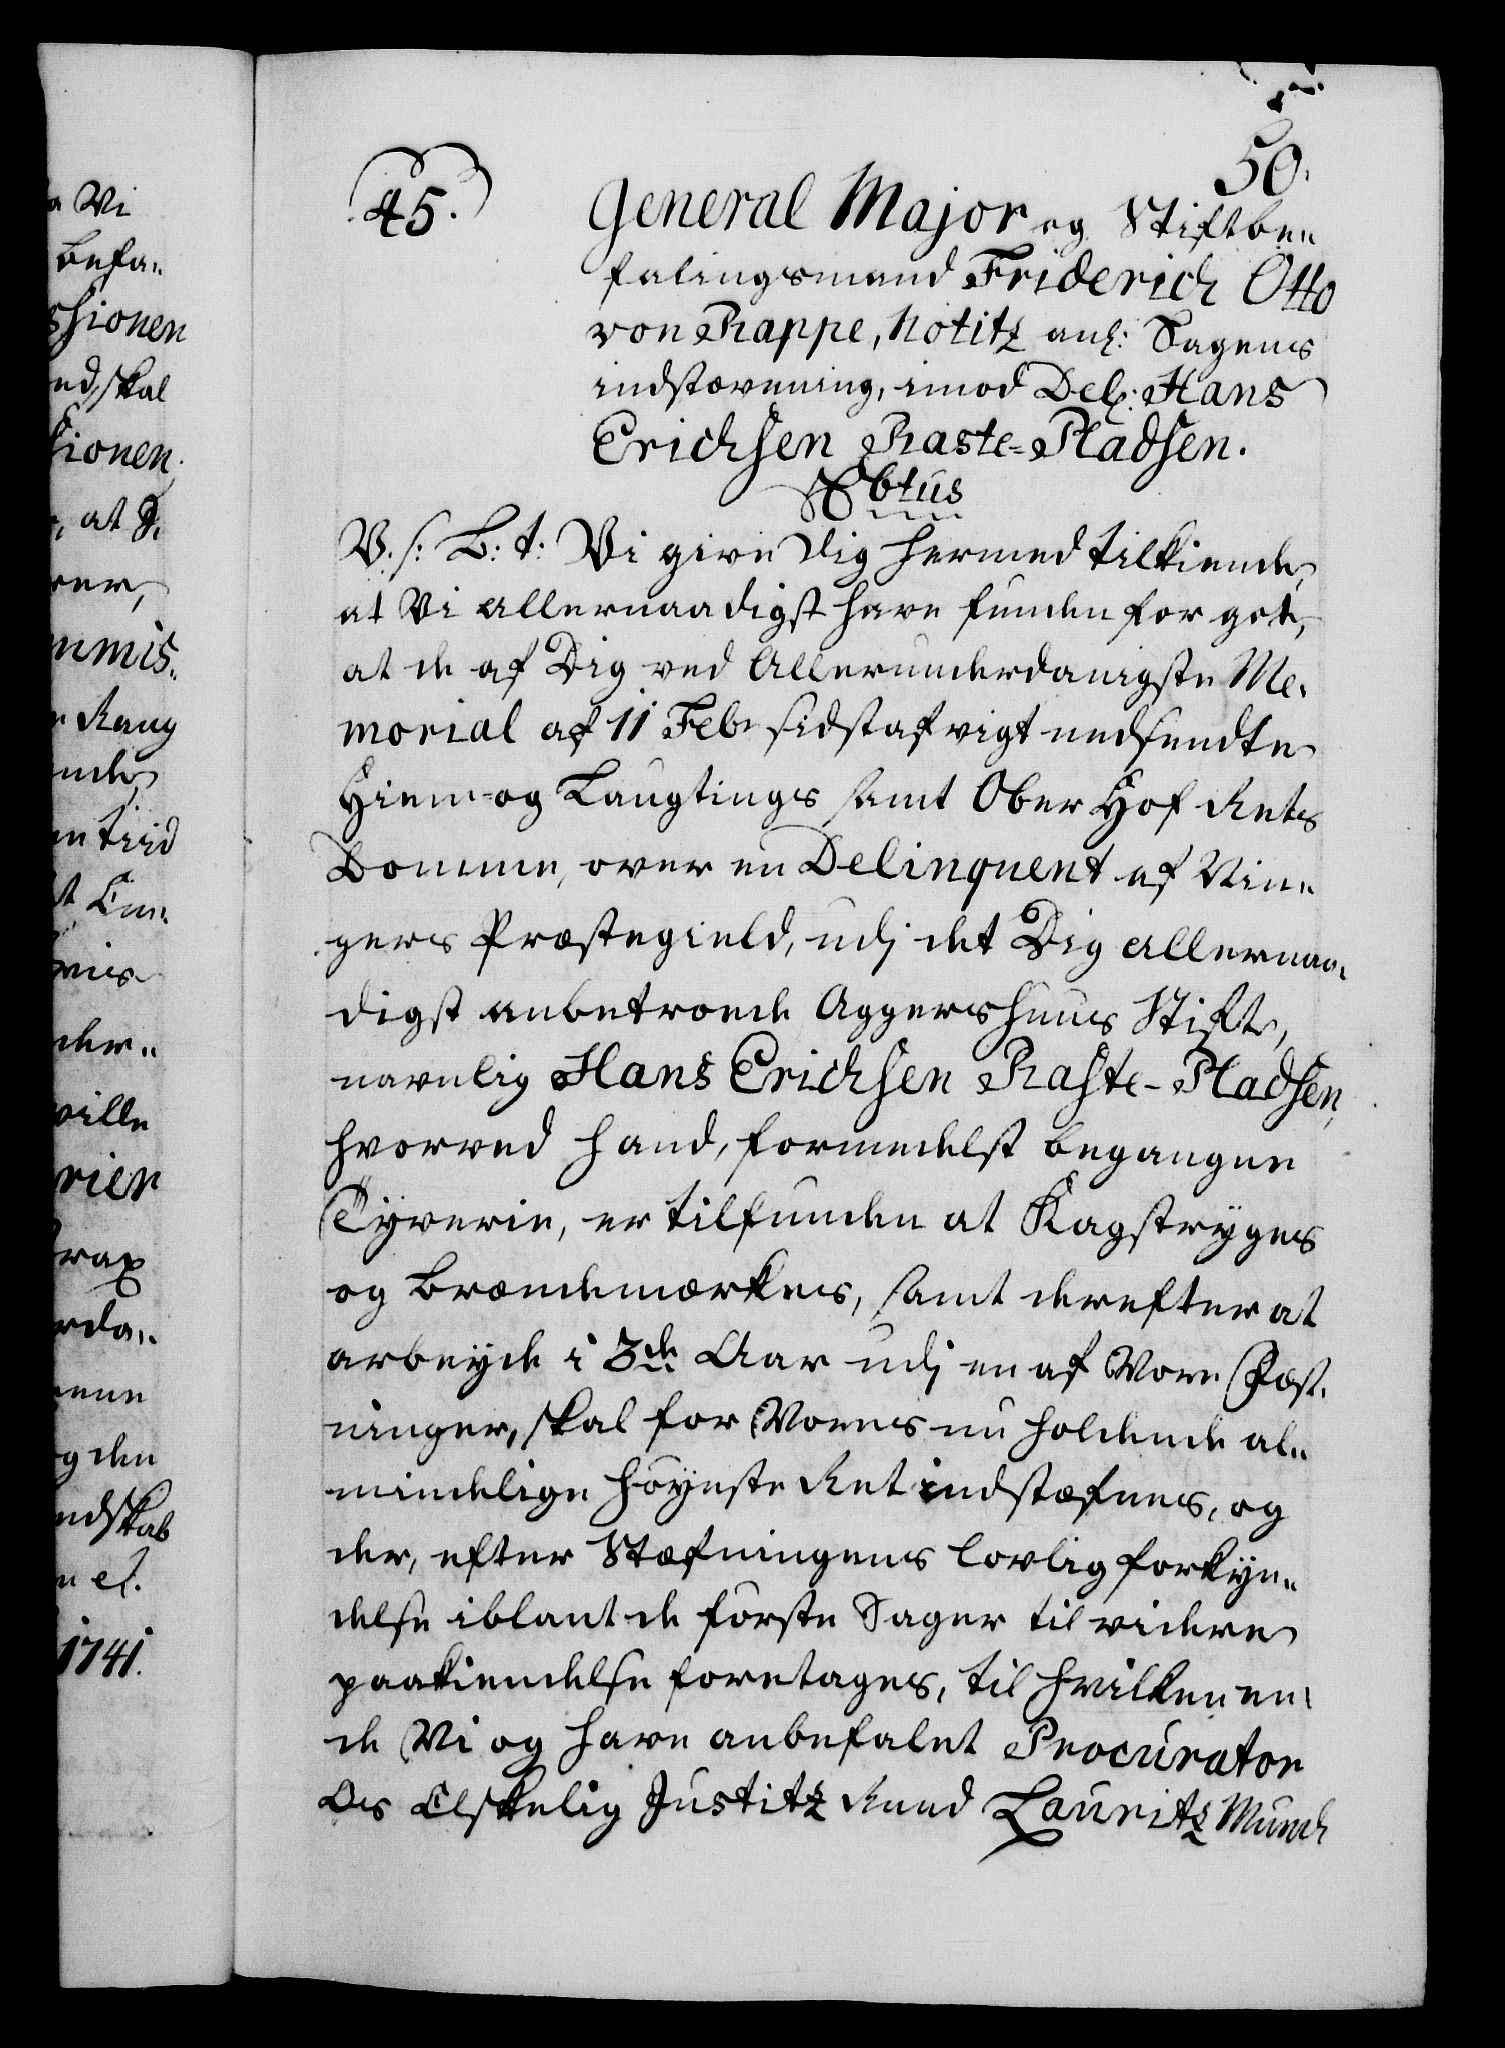 50.
45.
General Major og Stiftbe„
falingsmand Friderich Otto
von Rappe, Notitz anl: Sagens
indstævning, imod Del: Hans
Erichsen Raste-Pladsen.
V. s: B: t: Vi give Dig hermed tilkiende,
at Vi allernaadigst have funden for got,
at de af Dig ved Allerunderdanigste Me„
morial af 11 Febr sidstafvigt nedsendte
Hiem- og Laugtings samt Ober Hof Rets
Domme, over en Delinquent af Vin„
gers Præstegield, udj det Dig allernaa„
digst anbetroede Aggershuus Stift,
navnlig Hans Erichsen Raste-Pladsen,
hvorved hand, formedelst begangne
Tyverie, er tilfunden at Kagstryges
og Brændemærkes, samt derefter at
arbeyde i 3de Aar udj en af Vore Fæst„
ninger, skal for Vores nu holdende al„
mindelige Høyeste Ret indstæfnes, og
der, efter Stæfningens lovlig forkyn„
delse iblant de første Sager til videre
paakiendelse foretages, til hvilken en„
de Vi og have anbefalet Procurator
Os Elskelig Justitz Raad Lauritz Munch
a Vi
befa„
ssionen
ed, skal
sionen
, at d.
rer,
mmis„
r Rang
ende
en tiid
der„
ville
rien
rda„
og den
ndskab
n el.
1741.